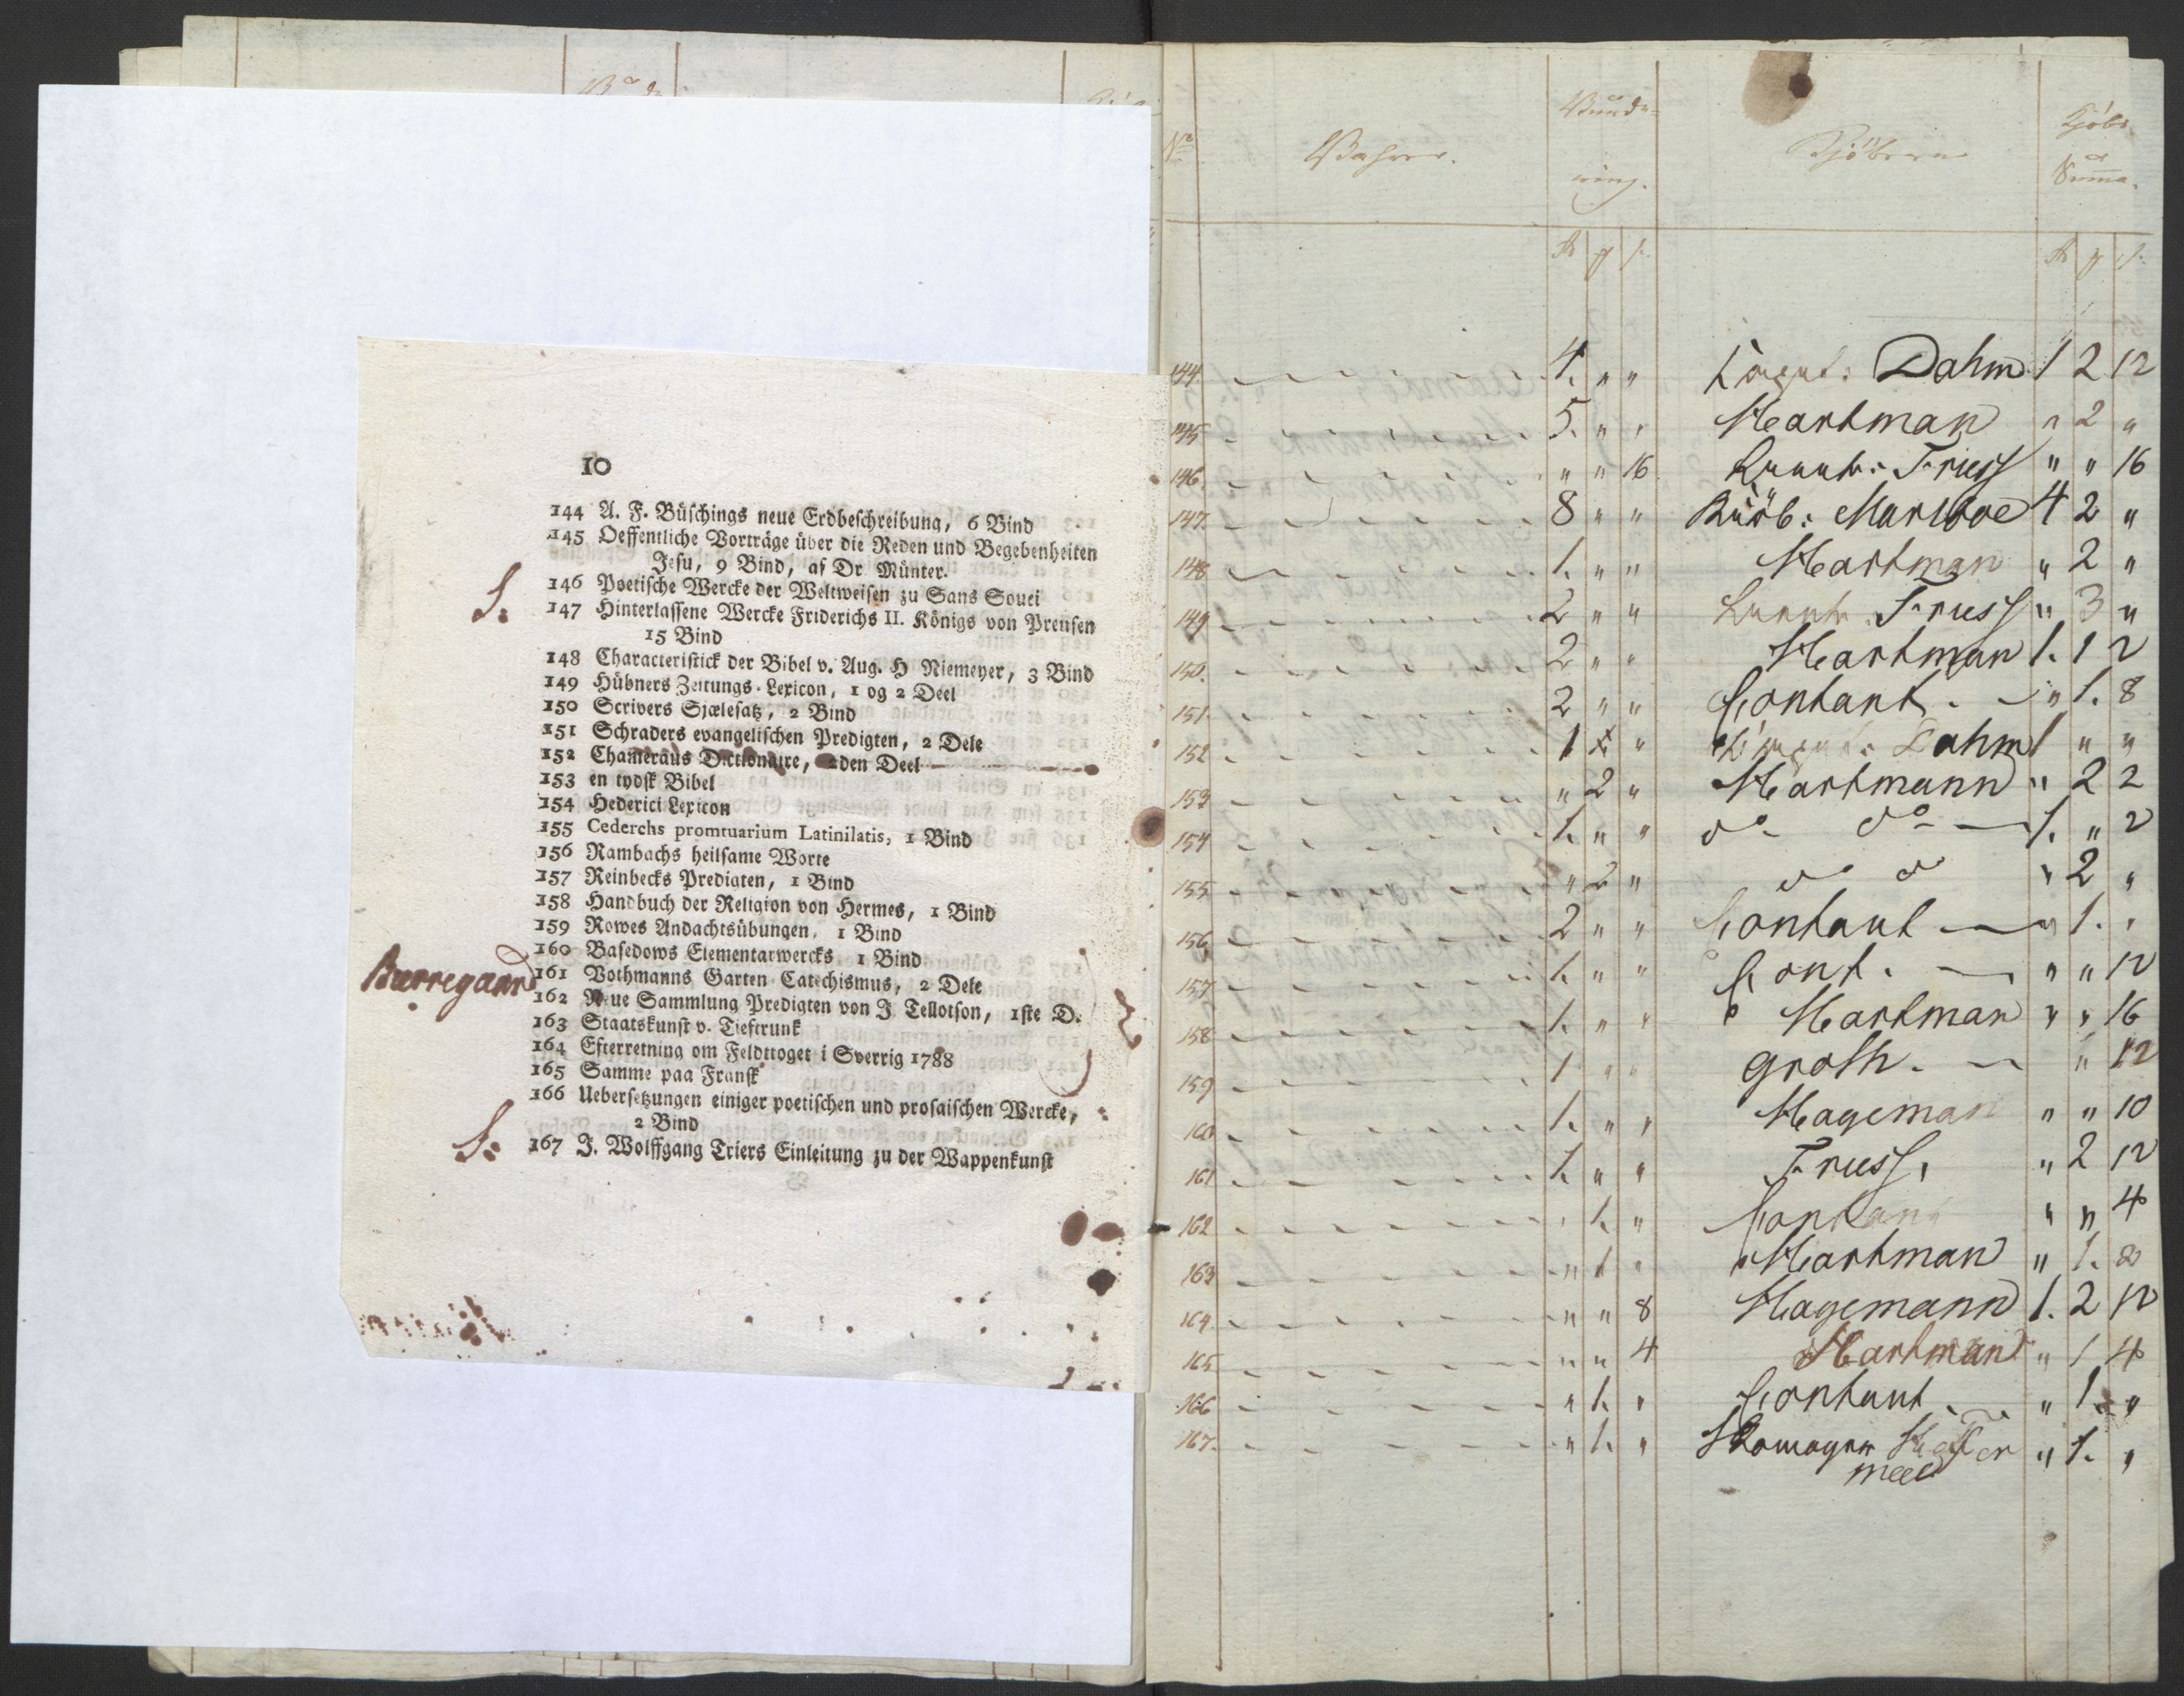 10
144 A. F. Büschings neue Erdbeschreibung, 6 Bind
145 Oeffentliche Vorträge über die Reden und Begebenheiten
Jesu, 9 Bind, af Dr Münter.
146 Poetische Wercke der Weltweisen zu Sans Souci
S:
147 Hinterlassene Wercke Friderichs II. Königs von Preusen
15 Bind
148 Characteristick der Bibel v. Aug. H Niemeyer, 3 Bind
149 Hübners Zeitungs-Lexicon, 1 og 2 Deel
150 Scrivers Sjælesatz, 2 Bind
151 Schraders evangelischen Predigten, 2 Dele
152 Chameraus Dictionaire, 2den Deel
153 en tydsk Bibel
154 Hederici Lexicon
155 Cederchs promtuarium Latinilatis, 1 Bind
156 Rambachs heilsame Worte
157 Reinbecks Predigten, 1 Bind
158 Handbuch der Religion von Hermes, 1 Bind
159 Rowes Andachtsübungen, 1 Bind
160 Basedows Elementarwercks 1 Bind
Burregaard
161 Vothmanns Garten Catechismus, 2 Dele
162 Neue Sammlung Predigten von J Tellotson, 1ste D.
163 Staatskunst v. Tieftrunk
164 Efterretning om Feldttoget i Sverrig 1788
165 Samme paa Fransk
166 Uebersetzungen einiger poetischen und prosaischen Wercke,
2 Bind
S:
167 J. Wolffgang Triers Einleitung zu der Wappenkunst
No Wahrer. Wurde- Kjøberen Kjøbe
ring. Summa.
144. 4. " " Dahm 1 2 12
145 5. " " Hartman " 2 "
146. " " 16 Friess " " 16
147. 8 " " Kiöb: Marlboe 4 2 "
148 1. " " Hartman " 2 "
149 2 " " Friess " 3 "
150. 2 " " Hartman 1. 1 2
151. 2 " " Contant. " 1. 8
152 1 " Dahm 1 " "
153 " 2 " Hartmann " 2 2
154 1. " " do do 1. " 2
155 " 2 " do do " 2 "
156 2 " " Contant " 1. "
157 1. " " Cont. " " 12
158 1. " " Hartman " " 16
159 1 " " Groth. " 12
160 1. " " Hageman " " 10
161 1. " " Friess, " 2 12
162 " 1. " Contant " " 4
163 " 1 " Hartman " 1. 8
164. " " 8 Hagemann 1. 2 12
165 " " 4 Hartmann " 1 4
166 " 1. " Contant " 1. "
167. " 1. " Skomager " 1. "